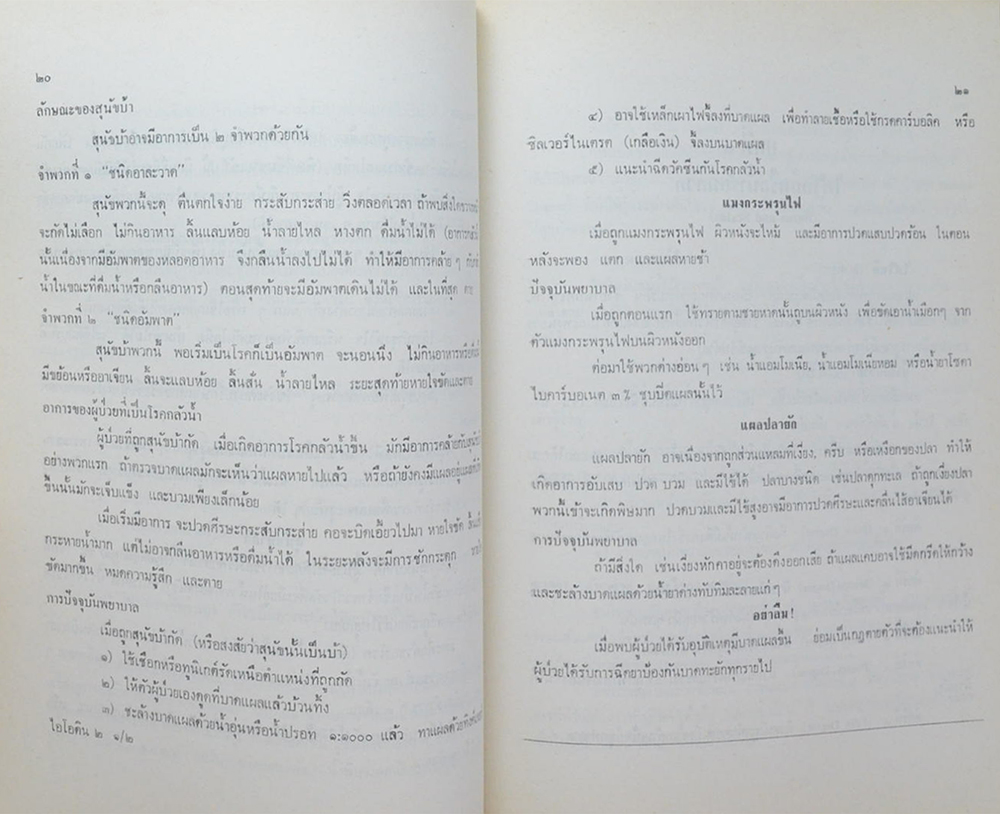 ๒๐
ลักษณะของสุนัขบ้า
สุนัขบ้าอาจมีอาการเป็น ๒ จำพวกด้วยกัน
จำพวกที่ ๑ "ชนิดอาละวาด"
สุนัขพวกนี้จะดุ ตื่นตกใจง่าย กระสับกระส่าย วิ่งตลอดเวลา ถ้าพบสิ่งใด
จะกัดไม่เลือก ไม่กินอาหาร ลิ้นแลบห้อย น้ำลายไหล หางตก ดื่มน้ำไม่ได้ (อาการ
นั้นเนื่องจากมีอัมพาตของหลอดอาหาร จึงกลืนน้ำลงไปไม่ได้ ทำให้มีอาการคล้าย ๆ
น้ำในขณะที่ดื่มน้ำหรือกลืนอาหาร) ตอนสุดท้ายจะมีอัมพาตเดินไม่ได้ และในที่สุด ตาย
จำพวกที่ ๒ "ชนิดอัมพาต"
สุนัขบ้าพวกนี้ พอเริ่มเป็นโรคก็เป็นอัมพาต จะนอนนิ่ง ไม่กินอาหารหรือ
มีขย้อนหรืออาเจียน ลิ้นจะแลบห้อย ลิ้นสั่น น้ำลายไหล ระยะสุดท้ายหายใจขัดและตาย
อาการของผู้ป่วยที่เป็นโรคกลัวน้ำ
ผู้ป่วยที่ถูกสุนัขบ้ากัด เมื่อเกิดอาการโรคกลัวน้ำขึ้น มักมีอาการคล้ายกับ
อย่างพวกแรก ถ้าตรวจบาดแผลมักจะเห็นว่าแผลหายไปแล้ว หรือถ้ายังคงมีแผลอยู่
ขึ้นนั้นมักจะเจ็บแข็ง และบวมเพียงเล็กน้อย
เมื่อเริ่มมีอาการ จะปวดศีรษะกระสับกระส่าย คอจะบิดเอี้ยวไปมา หายใจขัด
กระหายน้ำมาก แต่ไม่อาจกลืนอาหารหรือดื่มน้ำได้ ในระยะหลังจะมีการชักกระตุก
ขัดมากขึ้น หมดความรู้สึก และตาย
การปัจจุบันพยาบาล
เมื่อถูกสุนัขบ้ากัด (หรือสงสัยว่าสุนัขนั้นเป็นบ้า)
๑) ใช้เชือกหรือทูนิเกต์รัดเหนือตำแหน่งที่ถูกกัด
๒) ให้ตัวผู้ป่วยเองดูดที่บาดแผลแล้วบ้วนทิ้ง
๓) ชะล้างบาดแผลด้วยน้ำอุ่นหรือน้ำปรอท ๑:๑๐๐๐ แล้ว ทาแผลด้วย
ไอโอดิน ๒ ๑/๒
๒๑
๔) อาจใช้เหล็กเผาไฟจี้ลงที่บาดแผล เพื่อทำลายเชื้อหรือใช้กรดคาร์บอลิค หรือ
ซิลเวอร์ไนเตรต (เกลือเงิน) จี้ลงบนบาดแผล
๕) แนะนำฉีดวัคซีนกันโรคกลัวน้ำ
แมงกระพรุนไฟ
เมื่อถูกแมงกระพรุนไฟ ผิวหนังจะไหม้ และมีอาการปวดแสบปวดร้อน ในตอน
หลังจะพอง แตก และแผลหายช้า
ปัจจุบันพยาบาล
เมื่อถูกตอนแรก ใช้ทรายตามชายหาดนั้นถูบนผิวหนัง เพื่อขัดเอาน้ำเมือกๆ จาก
ตัวแมงกระพรุนไฟบนผิวหนังออก
ต่อมาใช้พวกด่างอ่อนๆ เช่น น้ำแอมโมเนีย, น้ำแอมโมเนียหอม หรือน้ำยาโซดา
ไบคาร์บอเนต ๓% ชุบปิดแผลนั้นไว้
แผลปลายัก
แผลปลายัก อาจเนื่องจากถูกส่วนแหลมที่เงี่ยง, ครีบ หรือเหงือกของปลา ทำให้
เกิดอาการอับเสบ ปวด บวม และมีไข้ได้ ปลาบางชนิด เช่นปลาดุกทะเล ถ้าถูกเงี่ยงปลา
พวกนี้เข้าจะเกิดพิษมาก ปวดบวมและมีไข้สูงอาจมีอาการปวดศีรษะและคลื่นไส้อาเจียนได้
การปัจจุบันพยาบาล
ถ้ามีสิ่งใด เช่นเงี่ยงหักคาอยู่จะต้องดึงออกเสีย ถ้าแผลแคบอาจใช้มีดกรีดให้กว้าง
และชะล้างบาดแผลด้วยน้ำยาด่างทับทิมละลายแก่ๆ
อย่าลืม!
เมื่อพบผู้ป่วยได้รับอุบัติเหตุมีบาดแผลขึ้น ย่อมเป็นกฎตายตัวที่จะต้องแนะนำให้
ผู้ป่วยได้รับการฉีดยาป้องกันบาดทะยักทุกรายไป